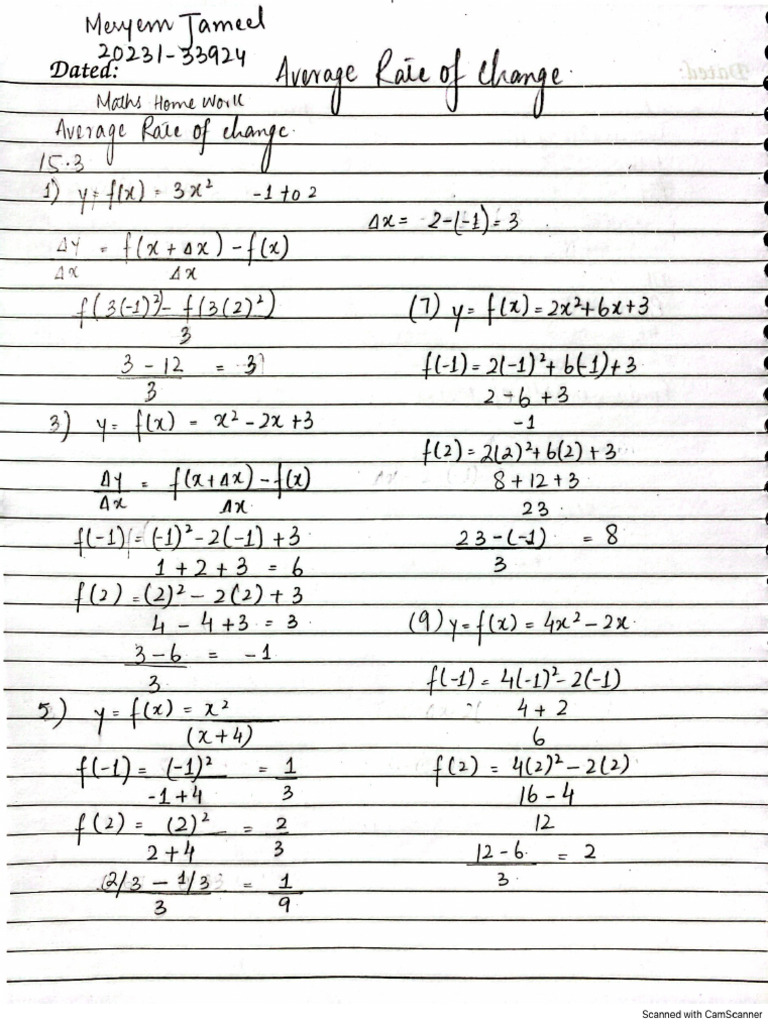 Meryem Jameel
20231-33924
Dated: Average Rate of Change.
Maths Home Work
Average Rate of change.
15.3
1) y = f(x) = 3x² -1 to 2
Δx = 2-(-1) = 3
Δy/Δx = f(x + Δx) - f(x) / Δx
f(3(-1)²) - f(3(2)²) / 3
3 - 12 / 3 = 3
3) y = f(x) = x² - 2x + 3
Δy/Δx = f(x+Δx) - f(x) / Δx
f(-1) = (-1)² - 2(-1) + 3
1 + 2 + 3 = 6
f(2) = (2)² - 2(2) + 3
4 - 4 + 3 = 3
3 - 6 / 3 = -1
5) y = f(x) = x² / (x+4)
f(-1) = (-1)² / -1+4 = 1/3
f(2) = (2)² / 2+4 = 2/3
2/3 - 1/3 / 3 = 1/9
(7) y = f(x) = 2x² + 6x + 3
f(-1) = 2(-1)² + 6(-1) + 3
2 - 6 + 3
-1
f(2) = 2(2)² + 6(2) + 3
8 + 12 + 3
23
23 - (-1) / 3 = 8
(9) y = f(x) = 4x² - 2x
f(-1) = 4(-1)² - 2(-1)
4 + 2
6
f(2) = 4(2)² - 2(2)
16 - 4
12
12 - 6 / 3 = 2
Scanned with CamScanner